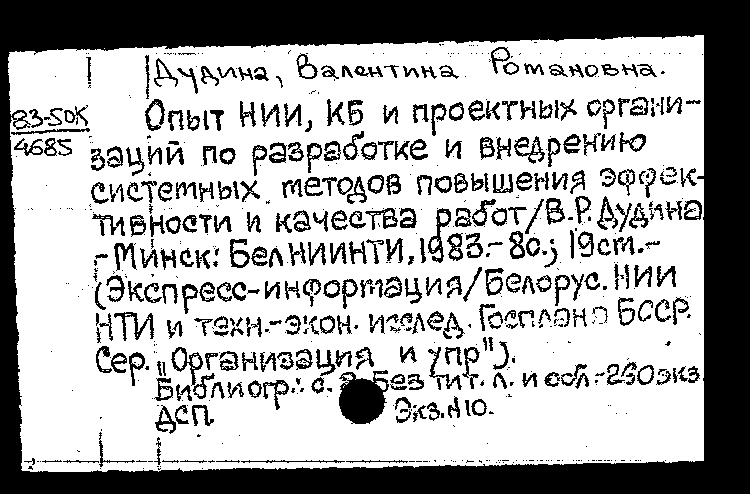 Дудина, Валентина Романовна.
83-50К
4685
Опыт НИИ, КБ и проектных органи-
заций по разработке и внедрению
системных методов повышения эффек-
тивности и качества работ/В.Р. Дудина
- Минск: БелНИИНТИ, 1983.- 8с.; 19см.-
(Экспресс-информация/Белорус. НИИ
НТИ и техн.-экон. исслед. Госплана БССР.
Сер. „Организация и упр").
Библиогр.: с. Без тит. л. и обл.-260экз.
ДСП. Экз.N10.